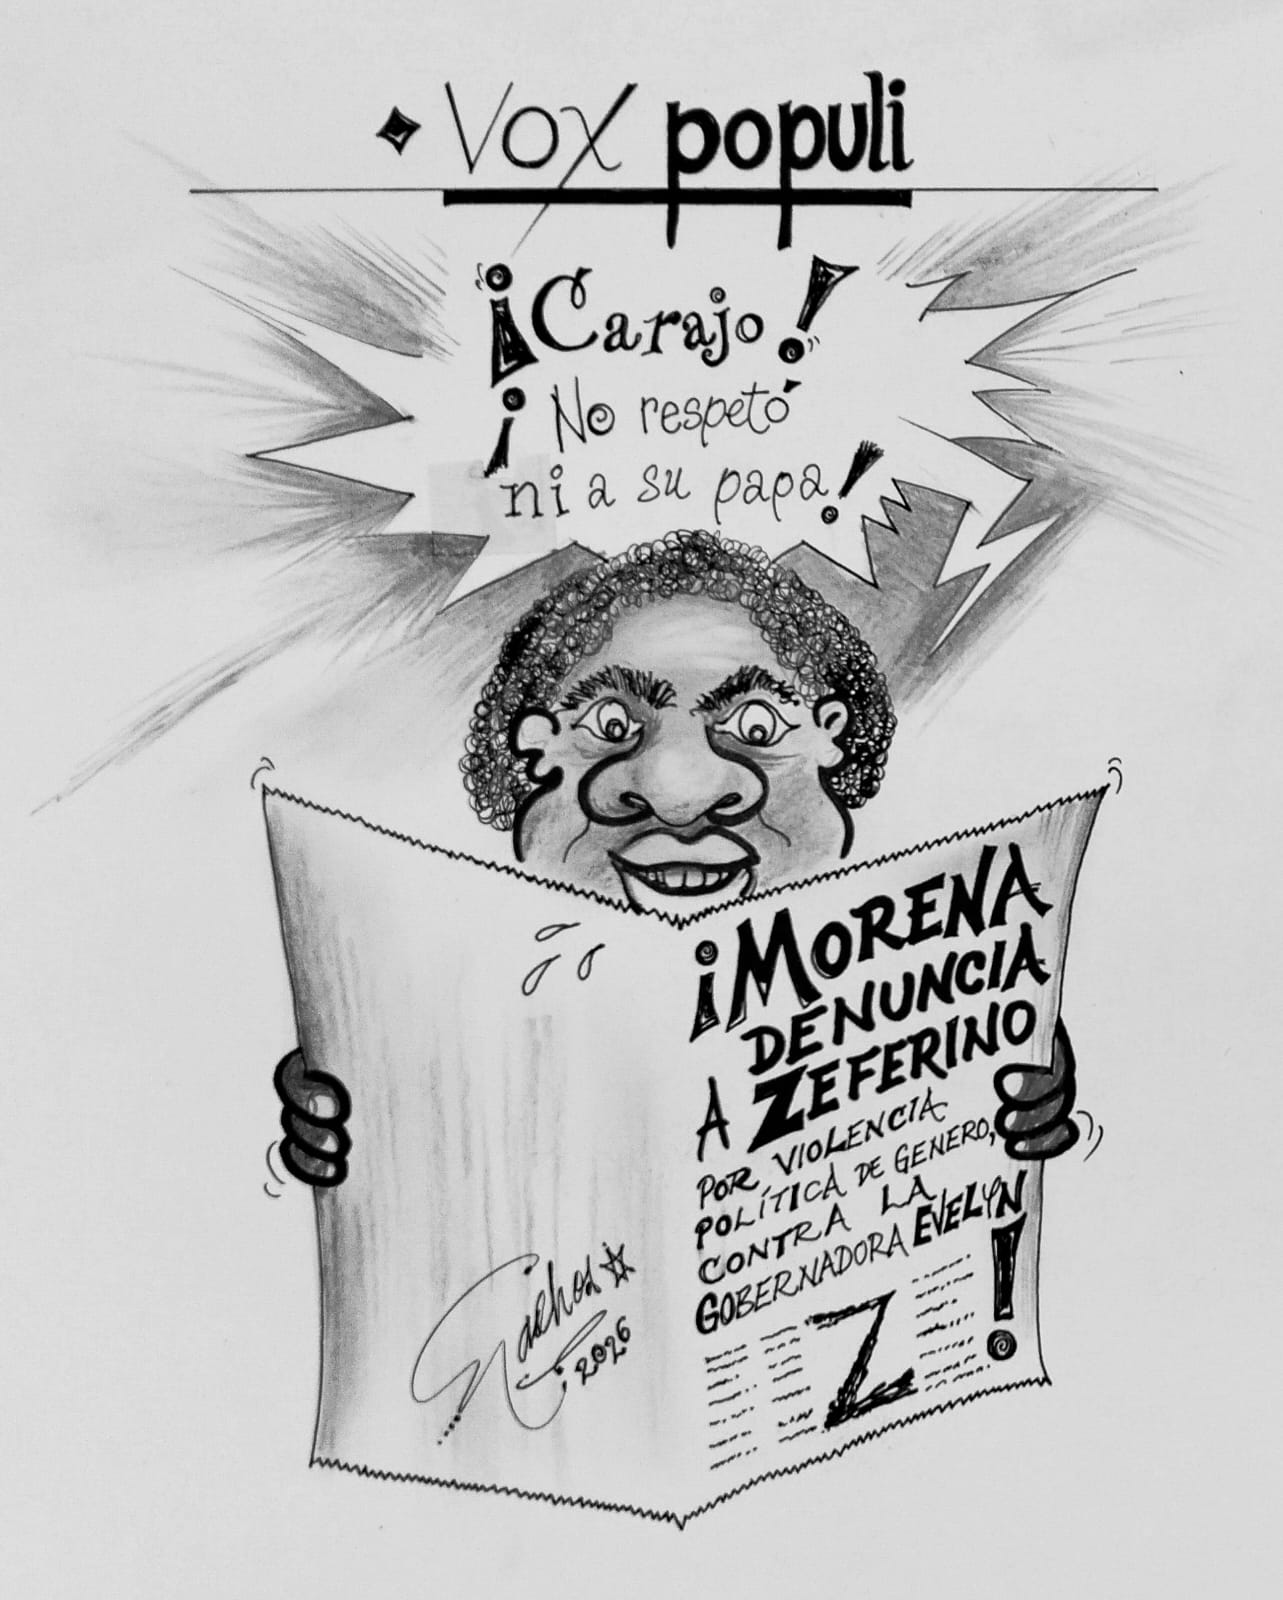 Vox populi
¡Carajo!
¡No respetó
ni a su papa!
¡MORENA
DENUNCIA
A ZEFERINO
POR VIOLENCIA
POLÍTICA DE GENERO,
CONTRA LA
GOBERNADORA EVELYN!
Z
2026